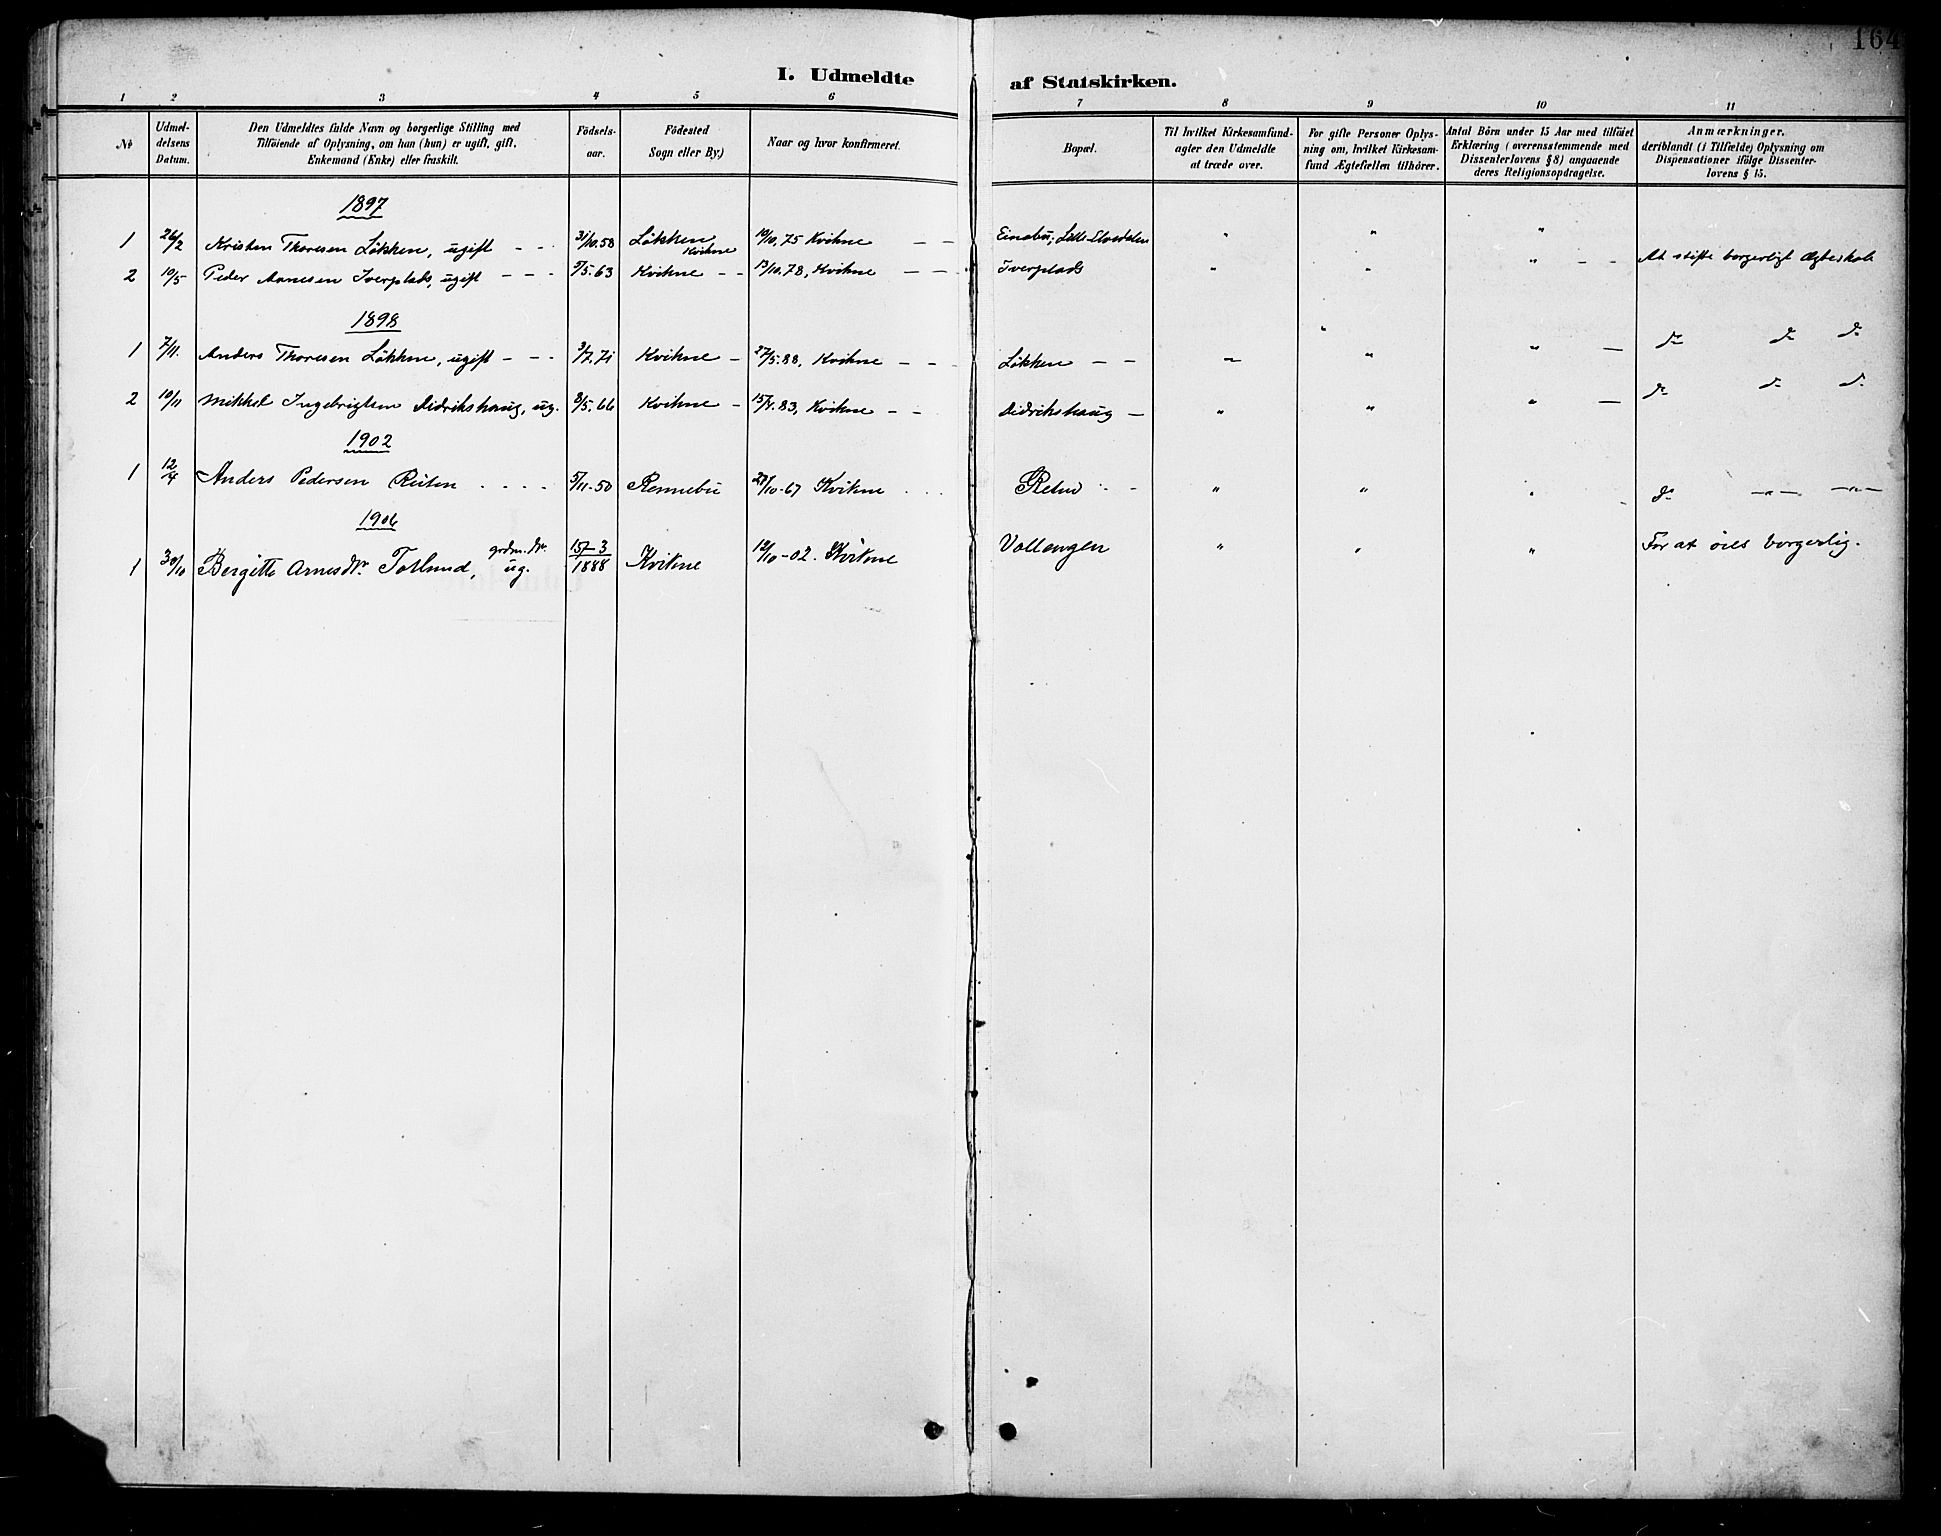 164
I. Udmeldte af Statskirken.
1 2 3 4 5 6 7 8 9 10 11
No
Udmeldelsens Datum.
Den Udmeldtes fulde Navn og borgerlige Stilling med
Tilföiende af Oplysning, om han (hun) er ugift, gift,
Enkemand (Enke) eller fraskilt.
Födselsaar.
Födested
Sogn eller By.)
Naar og hvor konfirmeret.
Bopæl.
Til hvilket Kirkesamfund-
agter den Udmeldte
at træde over.
For gifte Personer Oplys-
ning om, hvilket Kirkesam-
fund Ægtefællen tilhörer.
Antal Börn under 15 Aar med tilföiet
Erklæring (overensstemmende med
Dissenterlovens § 8) angaaende
deres Religionsopdragelse.
Anmærkninger.
deriblandt (i Tilfælde) Oplysning om
Dispensationer ifölge Dissenter-
lovens § 15.
1897
1 26/2 Kristen Thoresen Løkken, ugift - - 3/10.58 Løkken, Kvikne 10/10.75 Kvikne - - Einabu; Lille-Elvedalen " " "
2 10/5 Peder Arnesen Iverplads, ugift - - - 5/5.63 Kvikne - - 13/10.78, Kvikne - - - Iverplads " " " - - At stifte borgerligt Ægteskab
1898
1 7/11. Anders Thoresen Løkken, ugift - - - 3/7.71 Kvikne - 27/5.88, Kvikne - - - Løkken - - " " " - do do do
2 10/11 Mikkel Ingebrigtsen Didrikshaug, ug. 8/5.66 Kvikne - 15/7.83, Kvikne - - Didrikshaug - " " " - do do do
1902
1 12/4 Anders Pedersen Reiten . . . . 5/11-50 Rennebu 27/10-67 Kvikne . . . - - " " " do -"- -"-
1906
1 30/10 Bergitte Arnesdtr. Totlund, grdm. dtr. ug. 15/7-3 1888 Kvikne 12/10-02. Kvikne Vollengen " " " For at vies borgerlig.